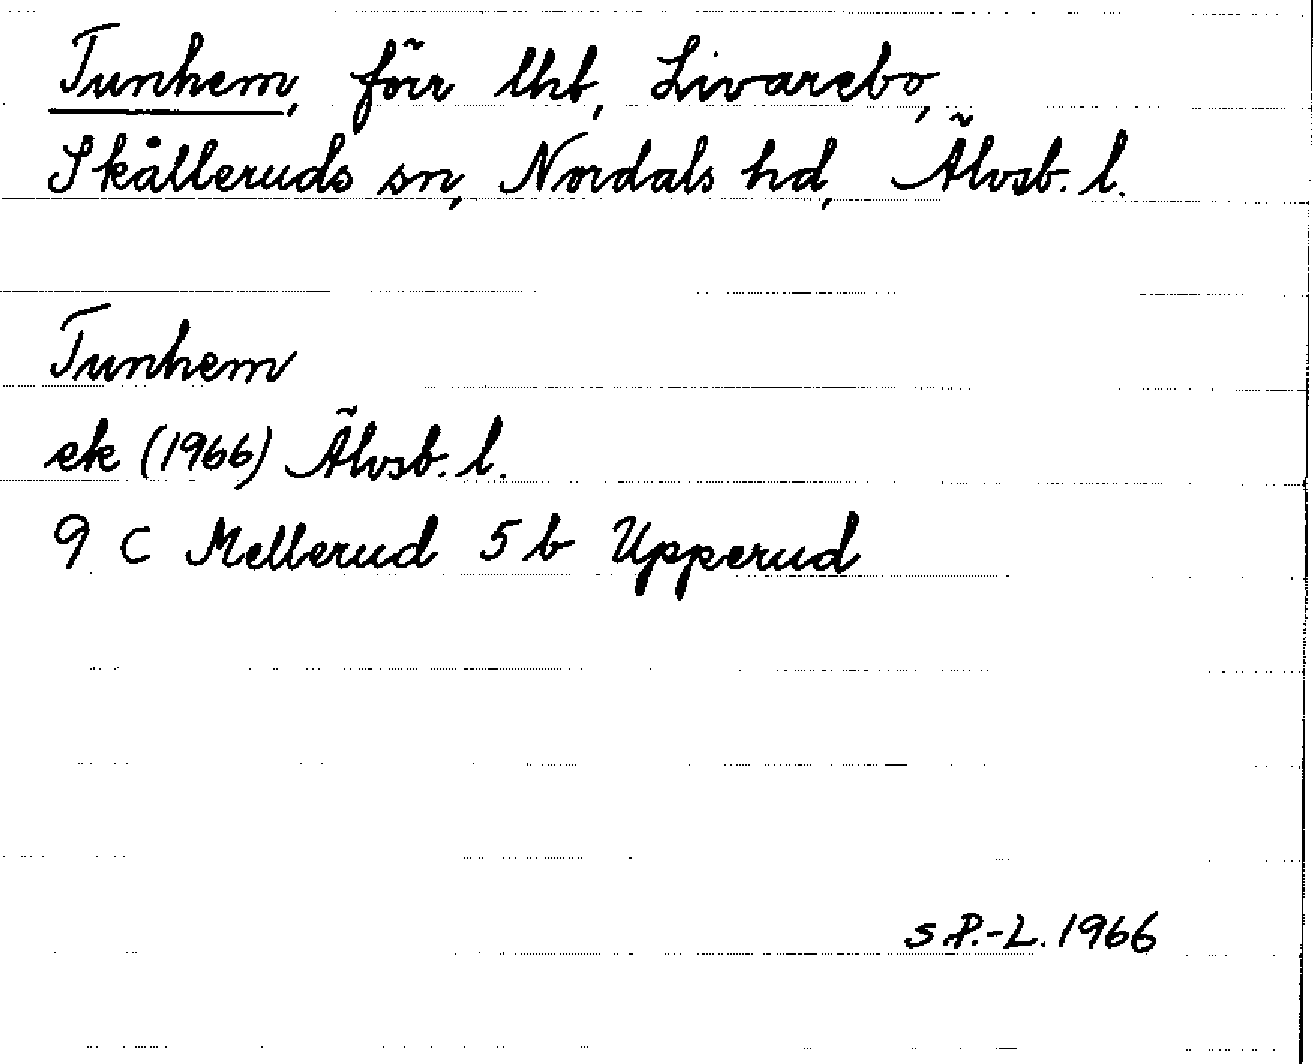 Tunhem, förr lht, Livarebo,
Skålleruds sn, Nordals hd, Älvsb. l.
Tunhem
ek (1966) Älvsb. l.
9 C Mellerud 5 b Upperud
S.P.-L. 1966